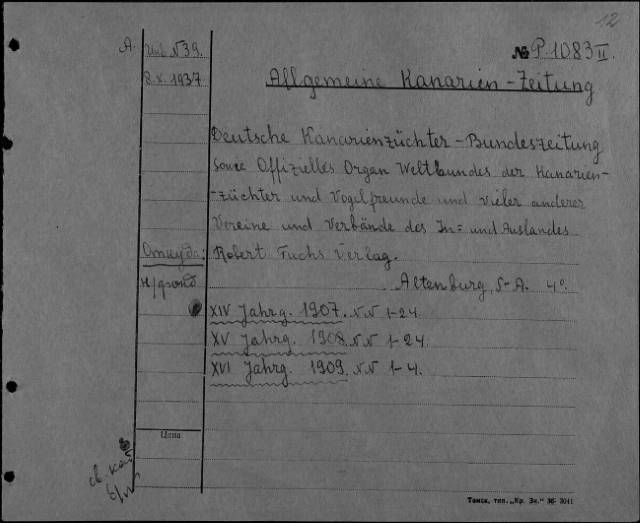 12
А. Инв. N39. № P.1083 II
8.X.1937 Allgemeine Kanarien-Zeitung.
Deutsche Kanarienzüchter-Bundeszeitung
sowie Offizielles Organ Weltbundes der Kanarien-
-züchter und Vogelfreunde und vieler anderer
Vereine und Verbände des In= und Auslandes
Откуда: Robert Fuchs Verlag.
н/фонд Altenburg, S-A. 4°.
XIV Jahrg. 1907. NN 1-24.
XV Jahrg. 1908. NN 1-24.
XVI Jahrg. 1909. NN 1-4.
Цена
Томск, тип. „Кр. Зн." 36- 3041